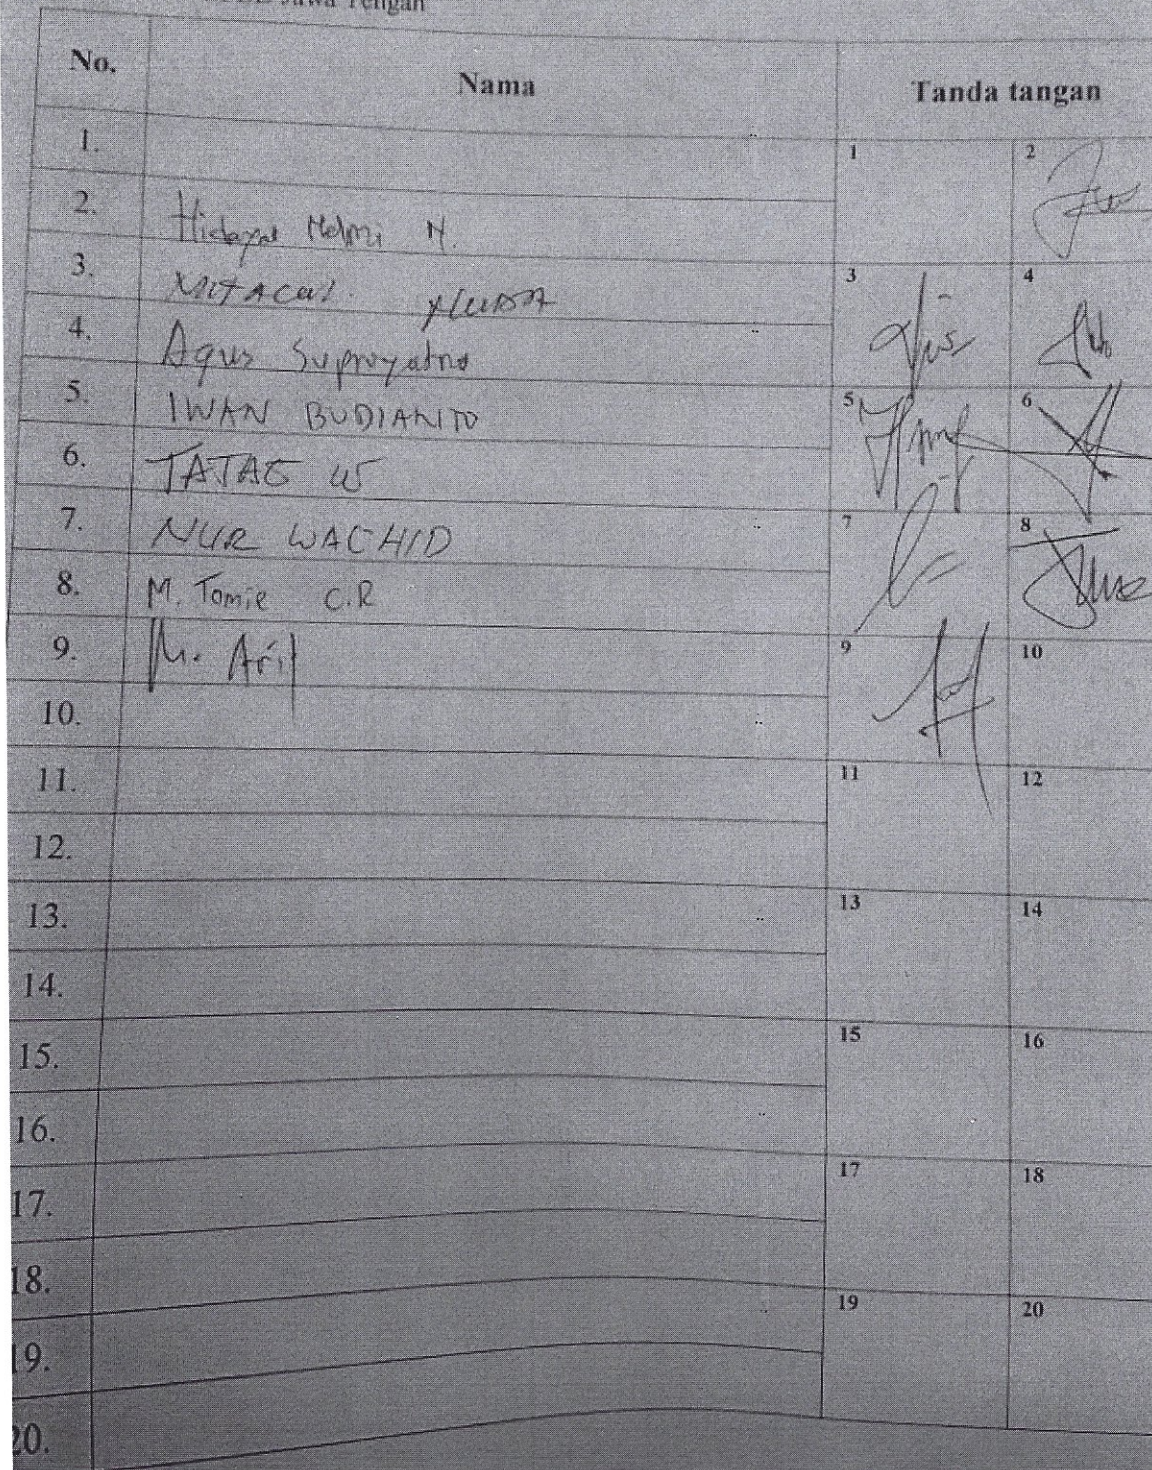 Jawa Tengah
No. Nama Tanda tangan
1. 1 2
2. Hidayat Helmi N.
3. 3 4
4. Agus Suprayatno
5. IWAN BUDIANTO 5 6
6. TATAG W
7. NUR WACHID 7 8
8. M. Tomie C.R
9. M. Arif 9 10
10.
11. 11 12
12.
13. 13 14
14.
15. 15 16
16.
17. 17 18
18.
19. 19 20
20.